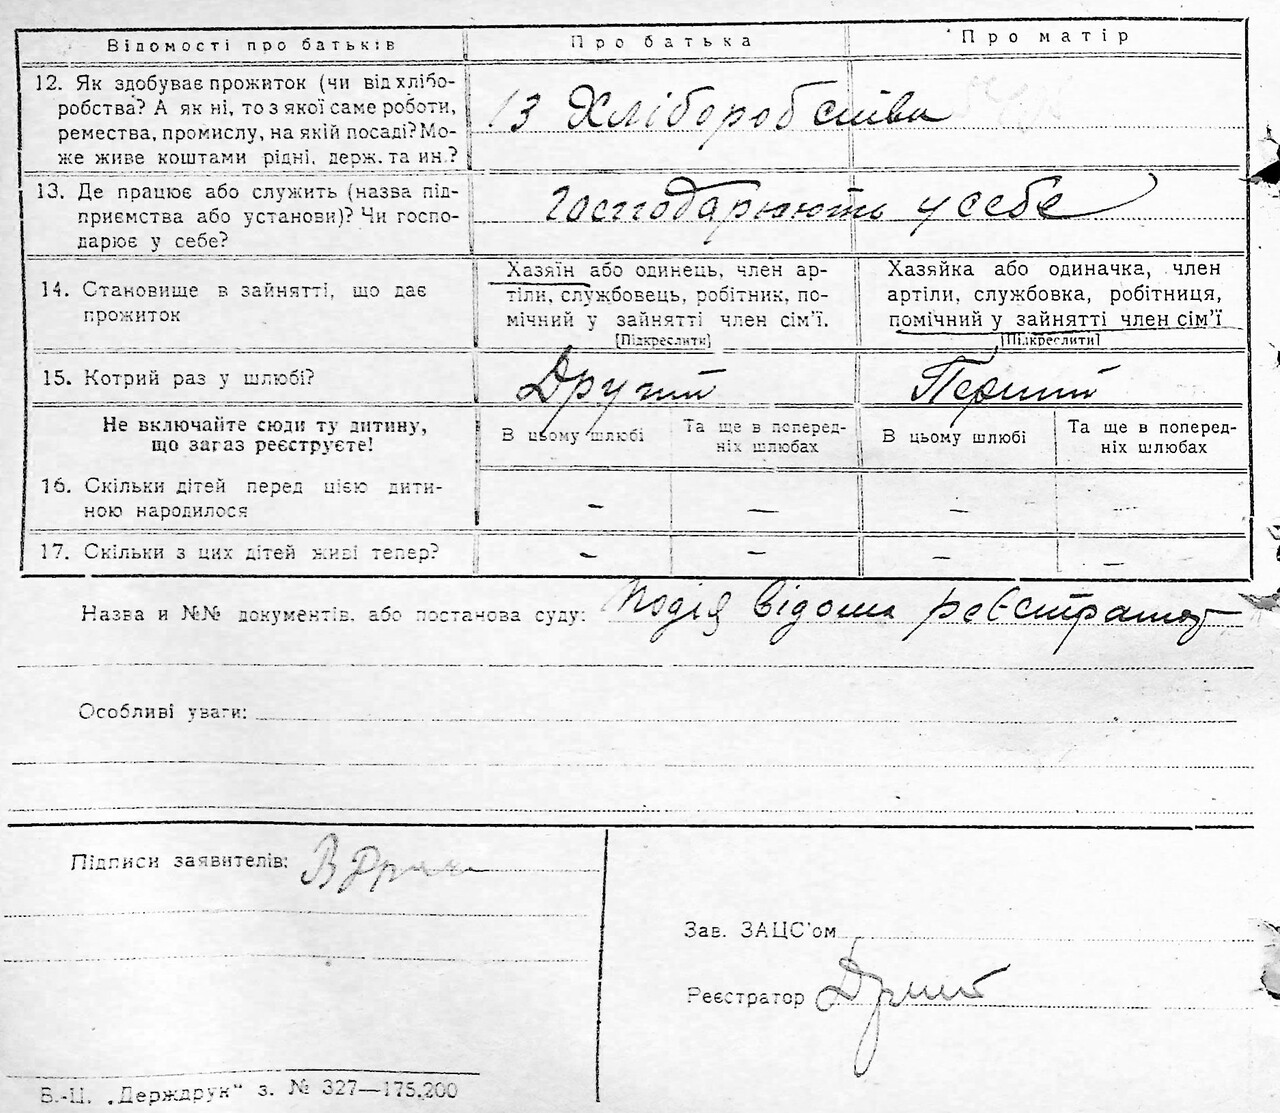 Відомості про батьків
Про батька
Про матір
12. Як здобуває прожиток (чи від хлібо-
робства? А як ні, то з якої саме роботи,
ремества, промислу, на якій посаді? Мо-
же живе коштами рідні, держ. та ин.?
Із Хліборобства
13. Де працює або служить (назва під-
приємства або установи)? Чи госпо-
дарює у себе?
господарюють у себе
14. Становище в зайнятті, що дає
прожиток
Хазяїн або одинець, член ар-
тіли, службовець, робітник, по-
мічний у зайнятті член сім'ї.
[Підкреслити]
Хазяйка або одиначка, член
артіли, службовка, робітниця,
помічний у зайнятті член сім'ї
[Підкреслити]
15. Котрий раз у шлюбі?
Другий
Перший
Не включайте сюди ту дитину,
що загаз реєструєте!
В цьому шлюбі
Та ще в поперед-
ніх шлюбах
В цьому шлюбі
Та ще в поперед-
ніх шлюбах
16. Скільки дітей перед цією дити-
ною народилося
– – – –
17. Скільки з цих дітей живі тепер?
– – – –
Назва и №№ документів, або постанова суду: Подія відома реєстратор
Особливі уваги:
Підписи заявителів:
Зав. ЗАЦС'ом
Реєстратор
Б.-Ц. „Держдрук" з. № 327—175.200